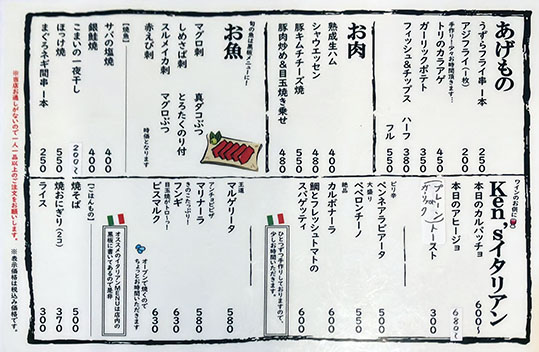 あげもの
うずらフライ串一本 200
アジフライ(1枚) 250
手作りソーダでお時間頂きます…
トリのカラアゲ 450
ガーリックポテト 400
フィッシュ&チップス
ハーフ 350
フル 550
お肉
熟成生ハム 400
シャウエッセン 480
豚キムチチーズ焼 550
豚肉炒め&目玉焼き乗せ 480
旬の魚は黒板メニューに!
お魚
マグロ刺
しめさば刺
スルメイカ刺
赤えび刺
真ダコぶつ
とろたくのり付
マグロぶつ
時価となります
【焼魚】
サバの塩焼 400
銀鮭焼 400
こまいの一夜干し 200〜
ほっけ焼 500
まぐろネギ間串一本 250
ワインのお供に
Ken,sイタリアン
本日のカルパッチョ 600〜
本日のアヒージョ 680〜
プレーン
ガーリック
トースト 300
ピリ辛
ペンネアラビアータ
大盛り
ペペロンチーノ
絶品
カルボナーラ 600
鯛とフレッシュトマトの
スパゲッティ 600
ひとつずつ手作りしておりますので、
少しお時間いただきます。
王道
マルゲリータ 580
アンチョビピザ
マリナーラ 580
きのこたっぷり!
フンギ 630
目玉焼がトロ〜ッ!
ビスマルク 630
オーブンで焼くので
ちょっとお時間いただきます
オススメのイタリアンMENUは店内の
黒板に書いてあるので是非
【ごはんもの】
焼そば 500
焼おにぎり(2コ) 370
ライス 300
※当店お通しがないので一人一品以上のご注文をお願いします。
※表示価格は税込み価格です。